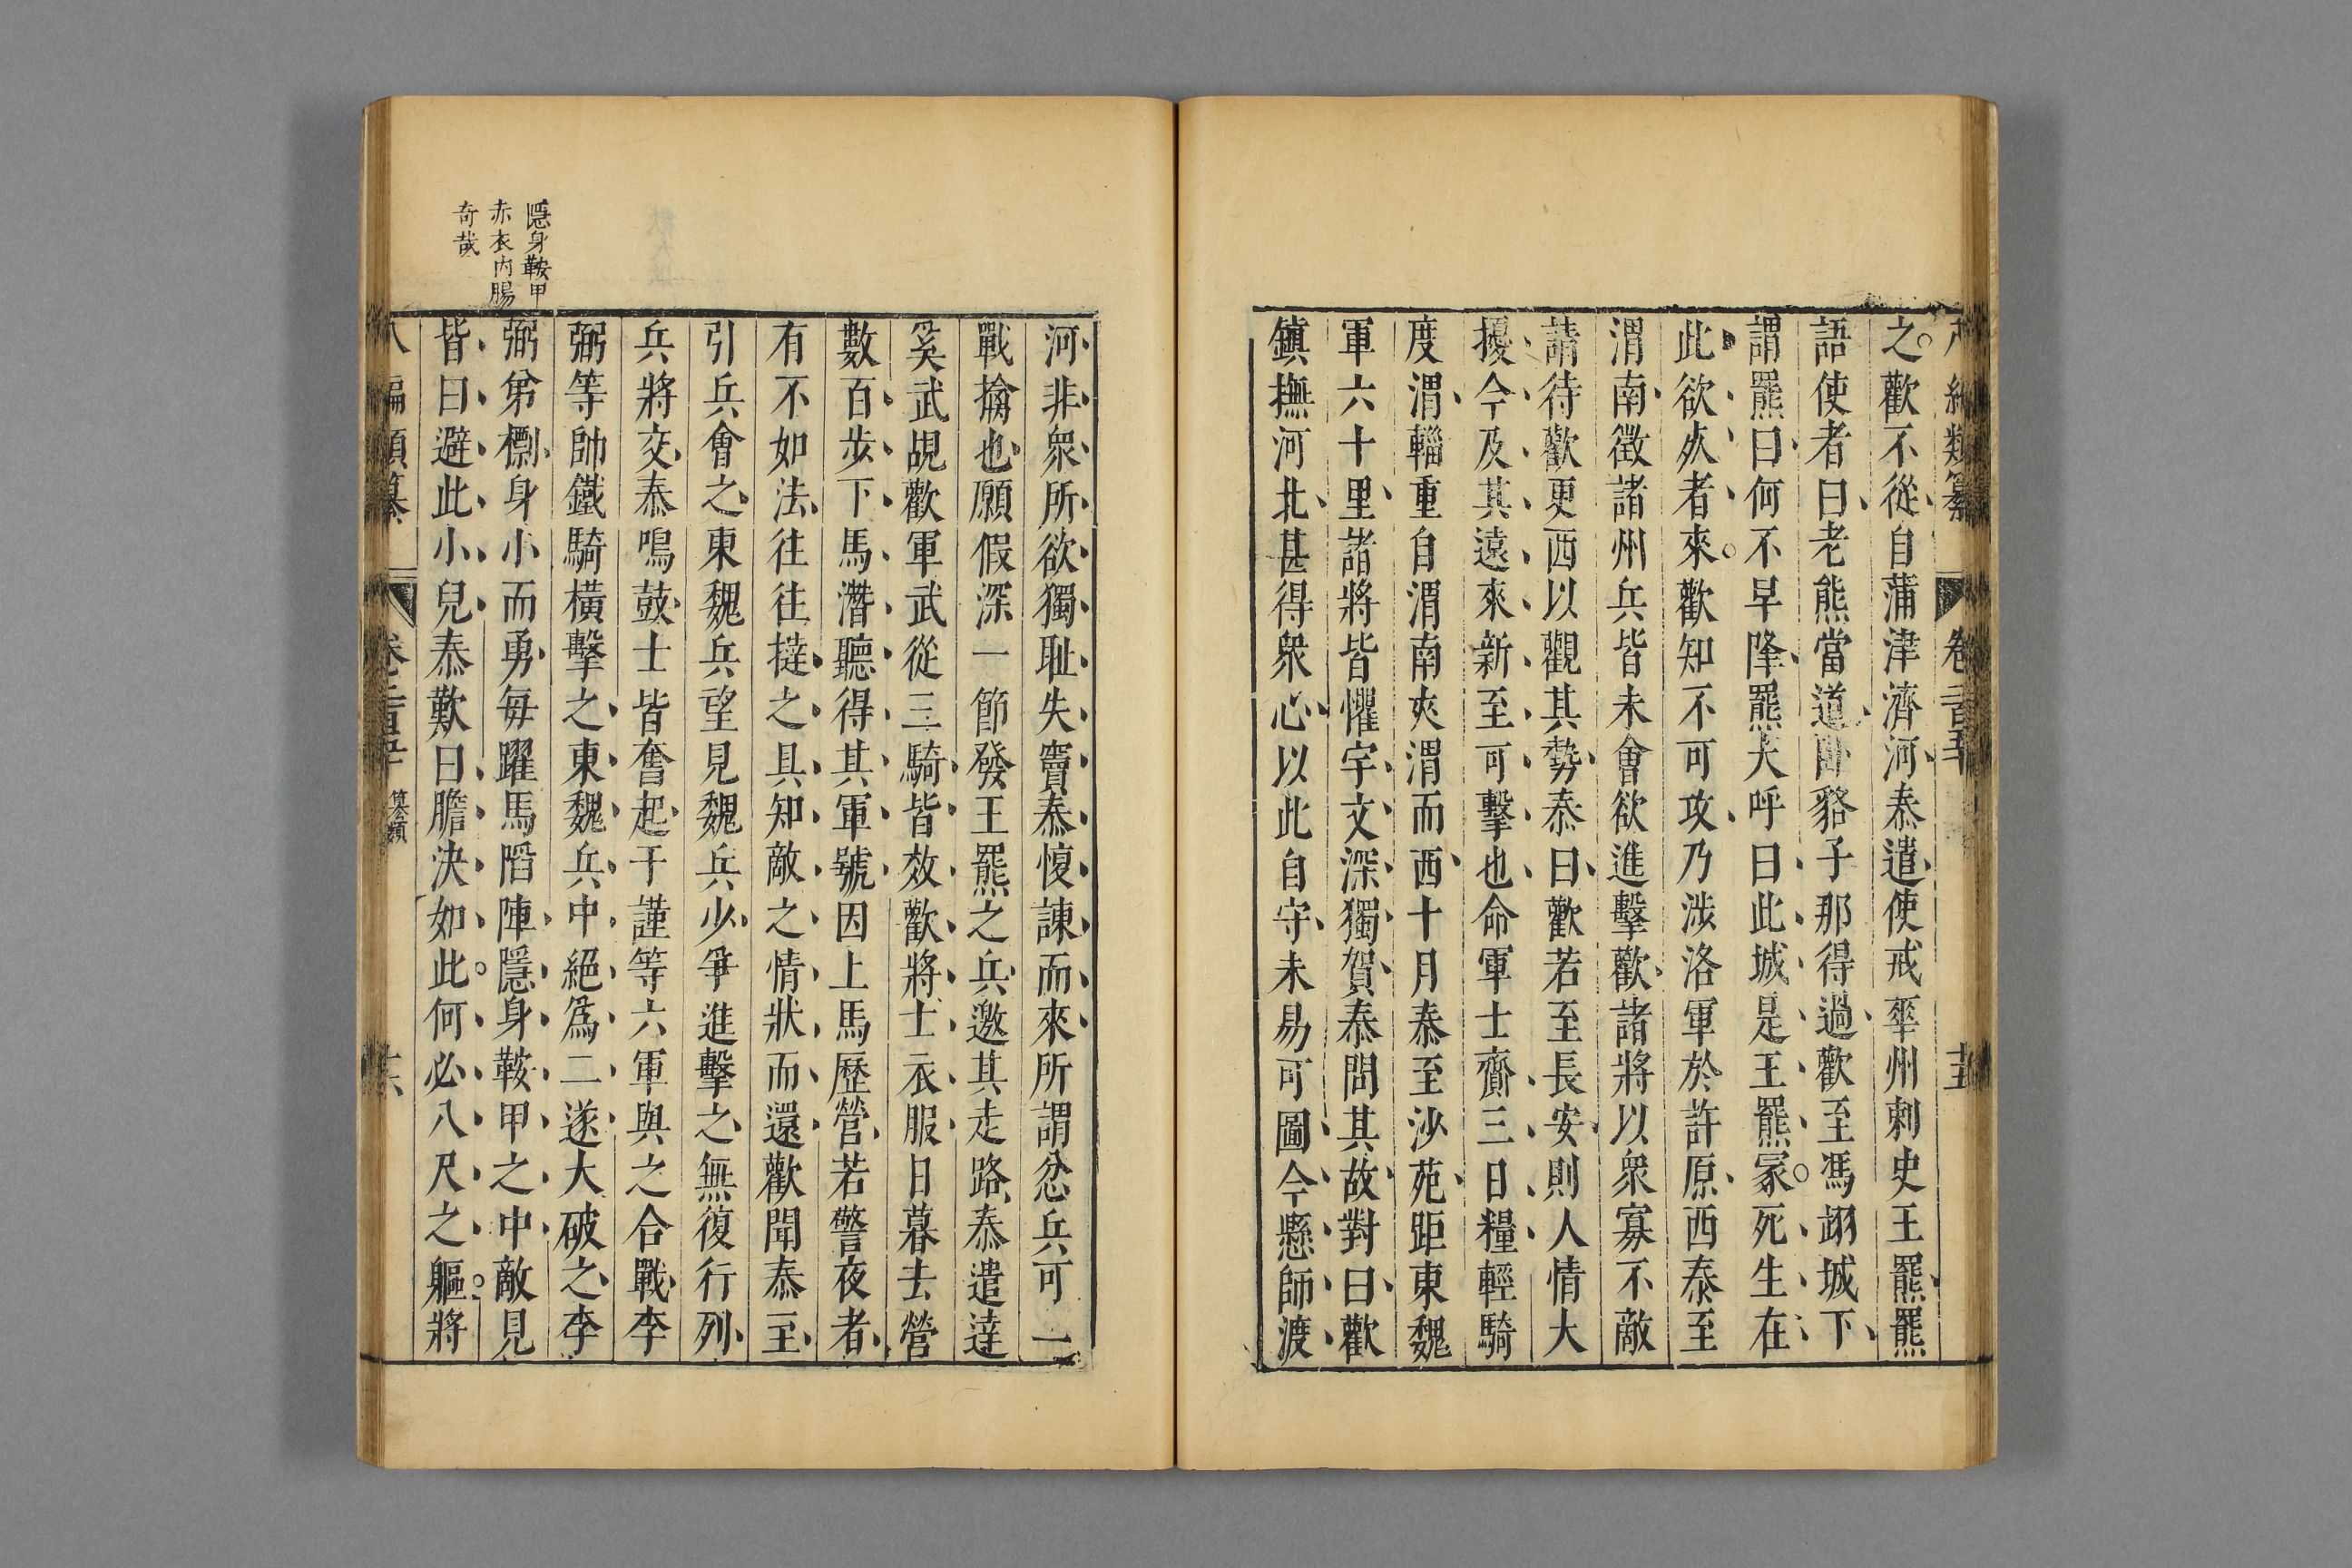 之歡不從自蒲津濟河泰遣使戒華州刺史王羆羆
語使者曰老熊當道臥貉子那得過歡至馮翊城下
謂羆曰何不早降羆大呼曰此城是王羆冢死生在
此欲死者來歡知不可攻乃涉洛軍於許原西泰至
渭南徵諸州兵皆未會欲進擊歡諸將以衆寡不敵
請待歡更西以觀其勢泰曰歡若至長安則人情大
擾今及其遠來新至可擊也命軍士齎三日糧輕騎
度渭輜重自渭南夾渭而西十月泰至沙苑距東魏
軍六十里諸將皆懼宇文深獨賀泰問其故對曰歡
鎮撫河北甚得衆心以此自守未易可圖今懸師渡
河非衆所欲獨耻失竇泰愎諫而來所謂忿兵可一
戰擒也願假深一節發王羆之兵邀其走路泰遣達
奚武覘歡軍武從三騎皆效歡將士衣服日暮去營
數百步下馬潛聽得其軍號因上馬歷營若警夜者
有不如法往往撻之具知敵之情狀而還歡聞泰至
引兵會之東魏兵望見魏兵少爭進擊之無復行列
兵將交泰鳴鼓士皆奮起于謹等六軍與之合戰李
弼等帥鐵騎橫擊之東魏兵中絕爲二遂大破之李
弼弟檦身小而勇每躍馬陷陣隱身鞍甲之中敵見
皆曰避此小兒泰歎曰膽決如此何必八尺之軀將
隱身鞍甲
赤衣内腸
奇哉